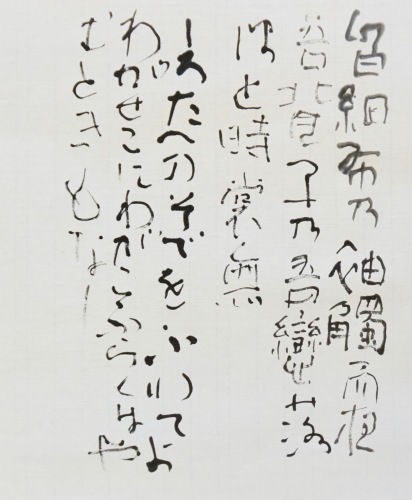 白細布乃袖觸而夜
吾背子乃吾戀落
波止時裳無
しろたへのそでをふれてよ
わがせこにわがこふらくはや
むときもなし